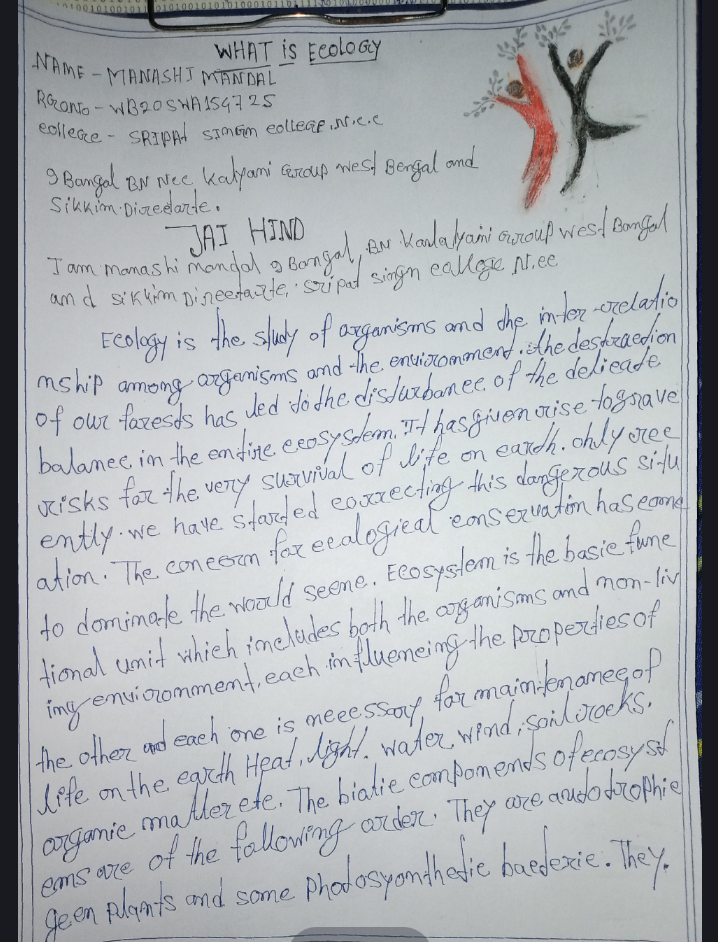 WHAT is Ecology
NAME - MANASHI MANDAL
RGZONTO - WB20SWA154725
college - SRIPAT SINGH college N.C.C
9 Bangal BN Ncc Kalyani Group West Bengal and
Sikkim Direedarte.
JAI HIND
I am manashi mandal 9 Bangal, BN Kalalyani Group West Bangal
and sikkim Direetarte, sripat singn callege N.cc
Ecology is the study of organisms and the inter-crelatio
nship among organisms and the environment. the destruction
of our forests has led to the disturbance of the delicate
balance in the entire ecosystem. It has given rise to grave
risks for the very survival of life on earth. only rec
ently we have started correcting this dangerous situ
ation. The concern for ecological conservation has come
to dominate the world scene. Ecosystem is the basic func
tional unit which includes both the organisms and non-liv
ing environment, each influencing the properties of
the other and each one is necessary for maintenance of
life on the earth Heat, light, water, wind, soil rocks,
organic matter etc. The biatic components of ecosyst
ems are of the following order. They are autotrophic
geen plants and some photosyonthetic bacterie. They.